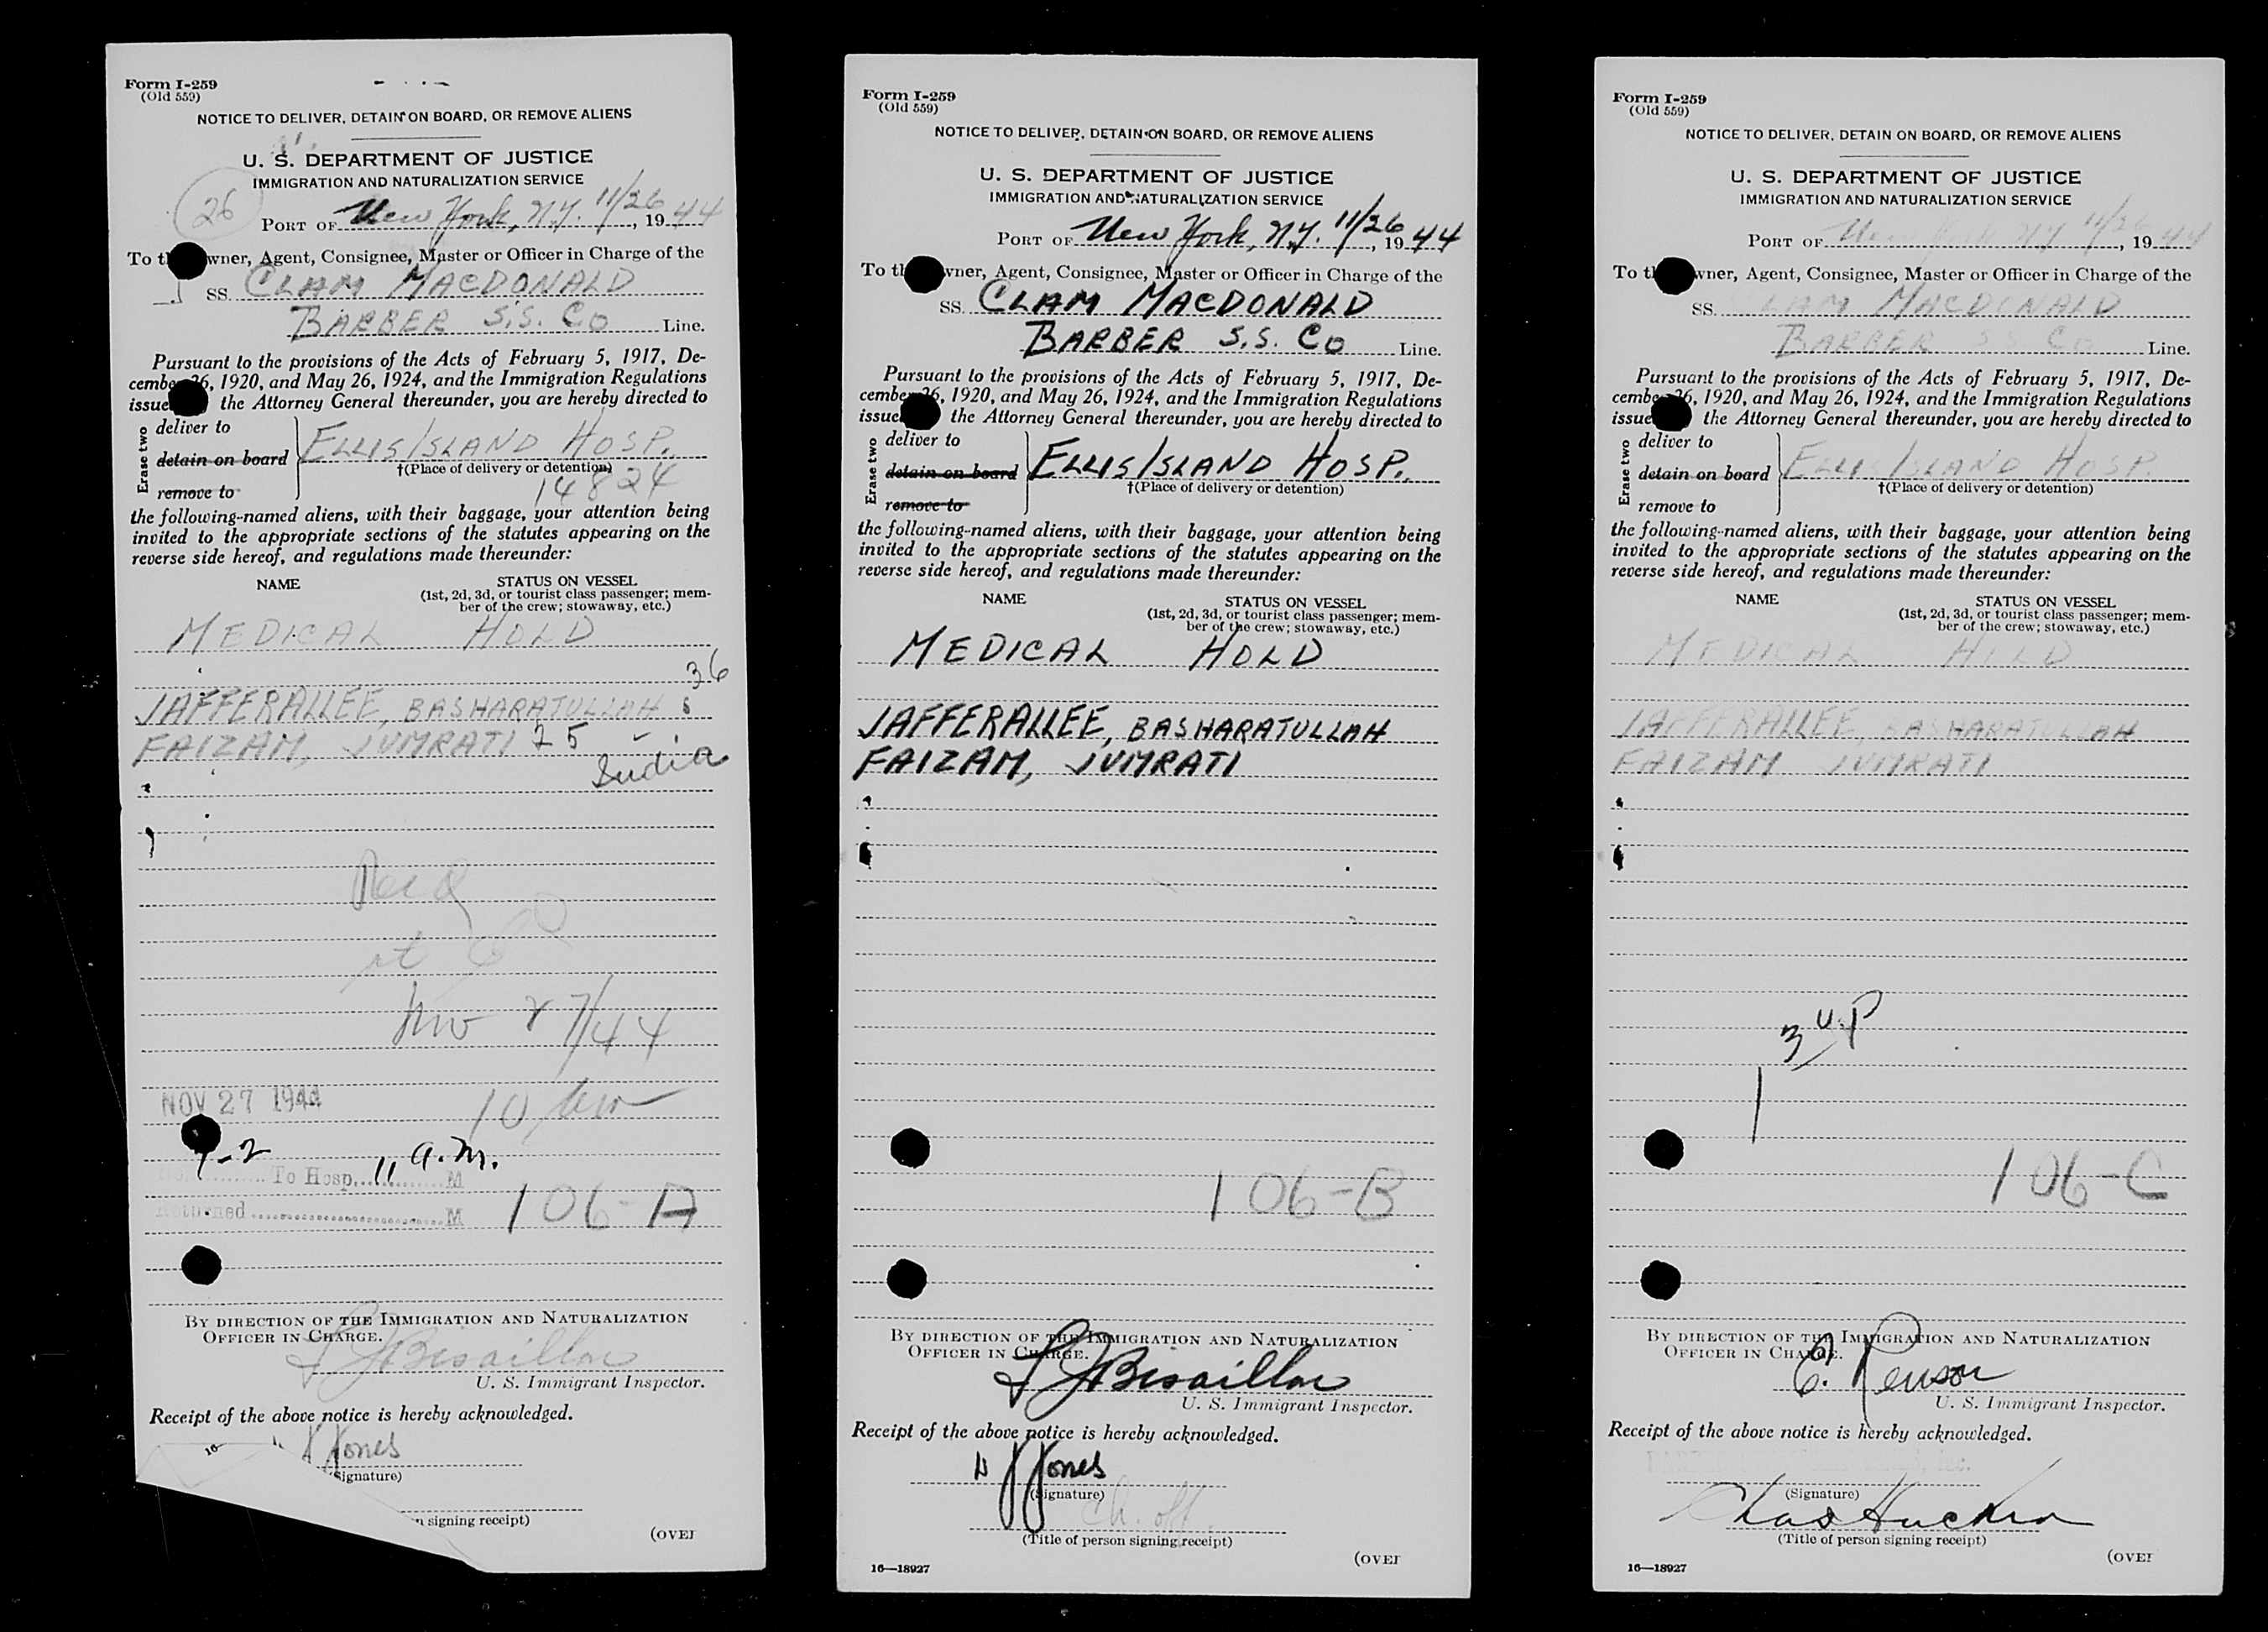 Form I-259
(Old 559)
NOTICE TO DELIVER, DETAIN ON BOARD, OR REMOVE ALIENS
U. S. DEPARTMENT OF JUSTICE
IMMIGRATION AND NATURALIZATION SERVICE
26
PORT OF New York, N.Y. 11/26, 1944
To t wner, Agent, Consignee, Master or Officer in Charge of the
SS. CLAM MACDONALD
BARBER S.S. CO Line.
Pursuant to the provisions of the Acts of February 5, 1917, De-
cember 26, 1920, and May 26, 1924, and the Immigration Regulations
issue the Attorney General thereunder, you are hereby directed to
Erase two
deliver to
detain on board ELLIS ISLAND HOSP.
†(Place of delivery or detention)
remove to
14824
the following-named aliens, with their baggage, your attention being
invited to the appropriate sections of the statutes appearing on the
reverse side hereof, and regulations made thereunder:
NAME STATUS ON VESSEL
(1st, 2d, 3d, or tourist class passenger; mem-
ber of the crew; stowaway, etc.)
MEDICAL HOLD
36
JAFFERALLEE, BASHARATULLAH
FAIZAM, JUMRATI 25
India
Rec'd
at
Nov 27/44
NOV 27 1944 10 am
To Hosp. 11 a.m. M
Returned M 106-A
BY DIRECTION OF THE IMMIGRATION AND NATURALIZATION
OFFICER IN CHARGE.
Bisaillon
U. S. Immigrant Inspector.
Receipt of the above notice is hereby acknowledged.
16— Jones
(Signature)
n signing receipt)
(OVER
Form I-259
(Old 559)
NOTICE TO DELIVER, DETAIN ON BOARD, OR REMOVE ALIENS
U. S. DEPARTMENT OF JUSTICE
IMMIGRATION AND NATURALIZATION SERVICE
PORT OF New York, N.Y. 11/26, 1944
To th wner, Agent, Consignee, Master or Officer in Charge of the
SS. CLAM MACDONALD
BARBER S.S. CO Line.
Pursuant to the provisions of the Acts of February 5, 1917, De-
cember 26, 1920, and May 26, 1924, and the Immigration Regulations
issue the Attorney General thereunder, you are hereby directed to
Erase two
deliver to
detain on board ELLIS ISLAND HOSP.
†(Place of delivery or detention)
remove to
the following-named aliens, with their baggage, your attention being
invited to the appropriate sections of the statutes appearing on the
reverse side hereof, and regulations made thereunder:
NAME STATUS ON VESSEL
(1st, 2d, 3d, or tourist class passenger; mem-
ber of the crew; stowaway, etc.)
MEDICAL HOLD
JAFFERALLEE, BASHARATULLAH
FAIZAM, JUMRATI
106-B
BY DIRECTION OF THE IMMIGRATION AND NATURALIZATION
OFFICER IN CHARGE.
Bisaillon
U. S. Immigrant Inspector.
Receipt of the above notice is hereby acknowledged.
Jones
(Signature)
Ch. off.
(Title of person signing receipt)
(OVER
16—18927
Form I-259
(Old 559)
NOTICE TO DELIVER, DETAIN ON BOARD, OR REMOVE ALIENS
U. S. DEPARTMENT OF JUSTICE
IMMIGRATION AND NATURALIZATION SERVICE
PORT OF New York, N.Y. 11/26, 1944
To t wner, Agent, Consignee, Master or Officer in Charge of the
SS. CLAM MACDONALD
BARBER S.S. CO Line.
Pursuant to the provisions of the Acts of February 5, 1917, De-
cember 26, 1920, and May 26, 1924, and the Immigration Regulations
issue the Attorney General thereunder, you are hereby directed to
Erase two
deliver to
detain on board ELLIS ISLAND HOSP.
†(Place of delivery or detention)
remove to
the following-named aliens, with their baggage, your attention being
invited to the appropriate sections of the statutes appearing on the
reverse side hereof, and regulations made thereunder:
NAME STATUS ON VESSEL
(1st, 2d, 3d, or tourist class passenger; mem-
ber of the crew; stowaway, etc.)
MEDICAL HOLD
JAFFERALLEE, BASHARATULLAH
FAIZAM JUMRATI
106-C
BY DIRECTION OF THE IMMIGRATION AND NATURALIZATION
OFFICER IN CHARGE.
U. S. Immigrant Inspector.
Receipt of the above notice is hereby acknowledged.
(Signature)
Chas
(Title of person signing receipt)
(OVER
16—18927